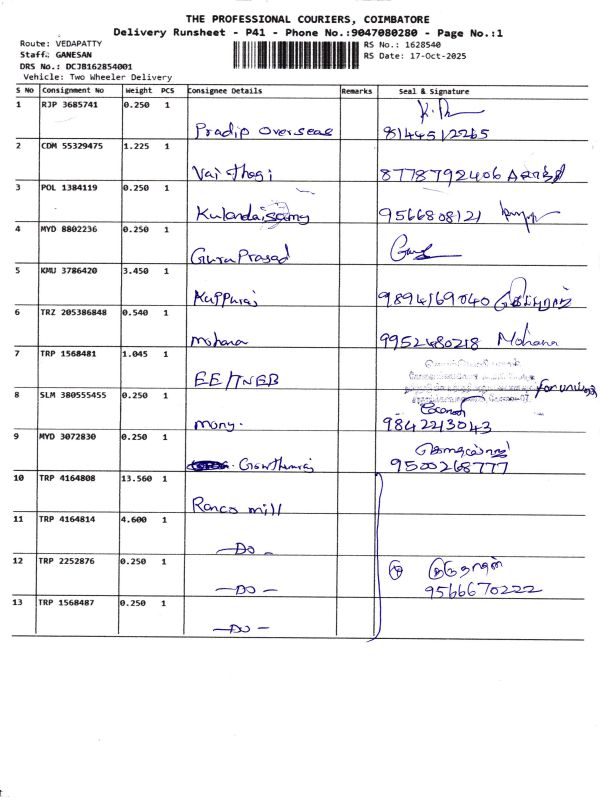 THE PROFESSIONAL COURIERS, COIMBATORE
Delivery Runsheet - P41 - Phone No.:9047080280 - Page No.:1
Route: VEDAPATTY
Staff: GANESAN
DRS No.: DCJB162854001
Vehicle: Two Wheeler Delivery
RS No.: 1628540
RS Date: 17-Oct-2025
S No Consignment No Weight PCS Consignee Details Remarks Seal & Signature
1 RJP 3685741 0.250 1
Pradip Overseas 8144512265
2 CDM 55329475 1.225 1
Vaithagi 8778792406
3 POL 1384119 0.250 1
Kulandaisamy 9566808121
4 MYD 8802236 0.250 1
Guru Prasad
5 KMU 3786420 3.450 1
Kuppuraj 9894169040
6 TRZ 205386848 0.540 1
Mohana 9952480218 Mohana
7 TRP 1568481 1.045 1
EE/TNEB
8 SLM 380555455 0.250 1
mony. 9842213043
9 MYD 3072830 0.250 1
Gowthamraj 9500268777
10 TRP 4164808 13.560 1
Ranco mill
11 TRP 4164814 4.600 1
- DO -
12 TRP 2252876 0.250 1
- DO - 9566670222
13 TRP 1568487 0.250 1
- DO -